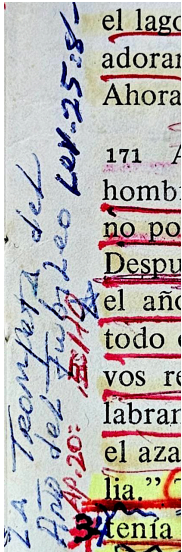 el lago
adorar
Ahora
171 A
hombr
no po
Despu
el año
todo e
vos re
labran
el aza
lia.”
tenía
LA Trompeta del
Año del Jubileo Lev-25:8-
Ap-20: